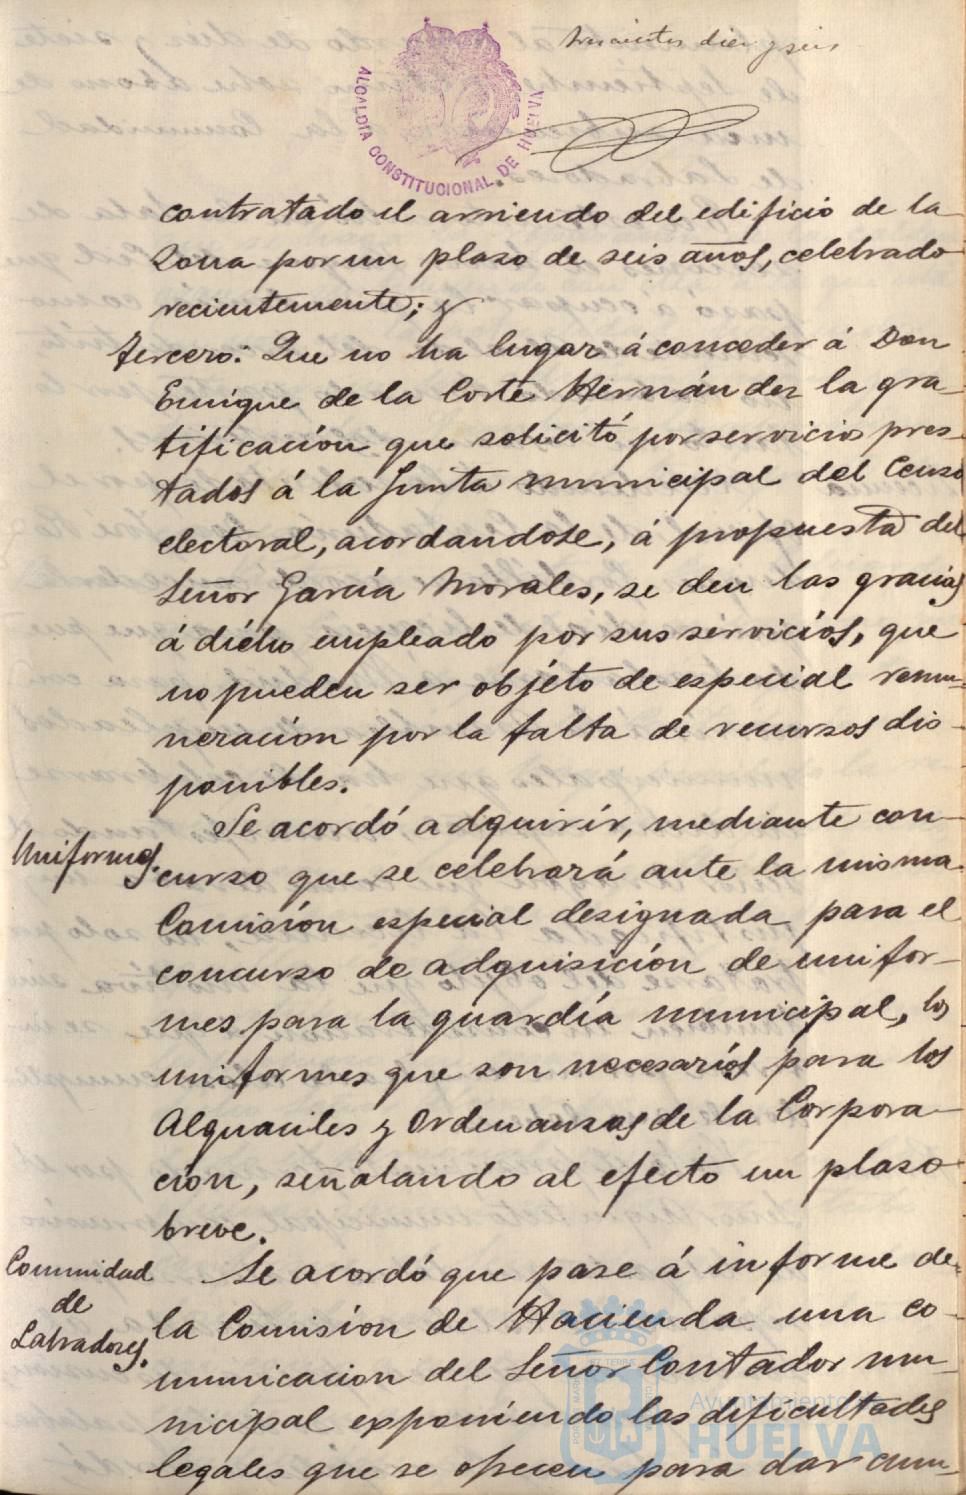 trescientos diez y seis
ALCALDIA CONSTITUCIONAL DE HUELVA
contratado el arriendo del edificio de la
Zona por un plazo de seis años, celebrado
recientemente; y
Tercero: Que no ha lugar á conceder á Don
Enrique de la Corte Hernández la gra-
tificación que solicitó por servicios pres-
tados á la Junta municipal del Censo
electoral, acordandose, á propuesta del
Señor García Morales, se den las gracias
á dicho empleado por sus servicios, que
no pueden ser objeto de especial remu-
neración por la falta de recursos dis-
ponibles.
Uniformes.
Se acordó adquirir, mediante con-
curso que se celebrará ante la misma
Comisión especial designada para el
concurso de adquisición de unifor-
mes para la guardía municipal, los
uniformes que son necesarios para los
Alguaciles y Ordenanzas de la Corpora-
ción, señalando al efecto un plazo
breve.
Comunidad
de
Labradores.
Se acordó que pase á informe de
la Comisión de Hacienda una co-
municacion del Señor Contador mu-
nicipal exponiendo las dificultades
legales que se ofrecen para dar cum-
Ayuntamiento
HUELVA